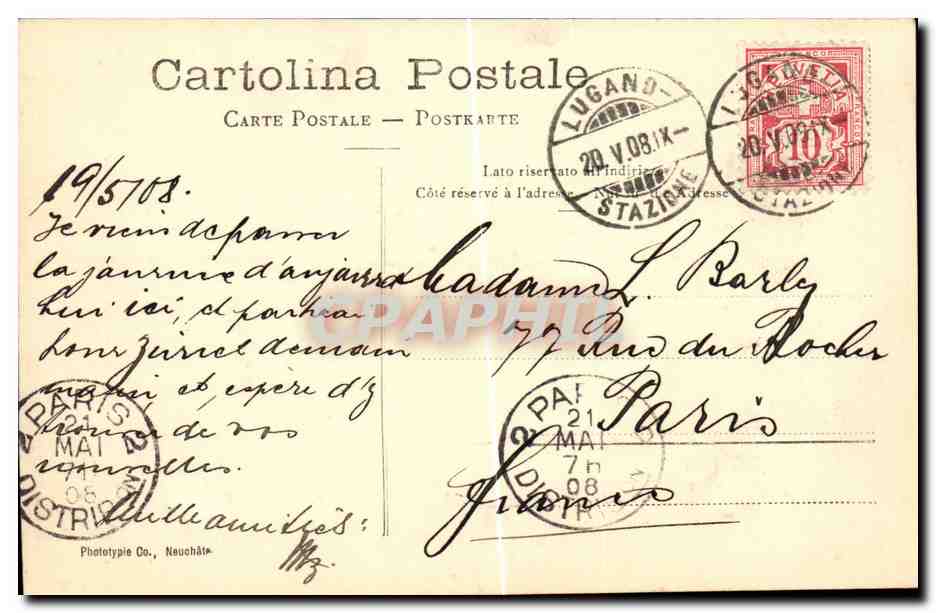 Cartolina Postale
CARTE POSTALE — POSTKARTE
Lato riservato all'indirizzo
Côté réservé à l'adresse Nur für die Adresse
LUGANO
20.V.08.IX
STAZIONE
LUGANO
20.V.08.IX
STAZIONE
HELVETIA
FRANCO
10
19/5/08.
Je viens de passer
la journée d'aujourd
hui ici, et partirai
pour Zürich demain
matin et espère d'y
trouver de vos
nouvelles.
Mille amitiés:
Madame L. Barley
77 Rue du Rocher
Paris
France
CPAPHIL
2 PARIS 2
21
MAI
7H
08
DISTRIBON
2 PARIS
21
MAI
7H
08
DISTRI
Phototypie Co., Neuchâte